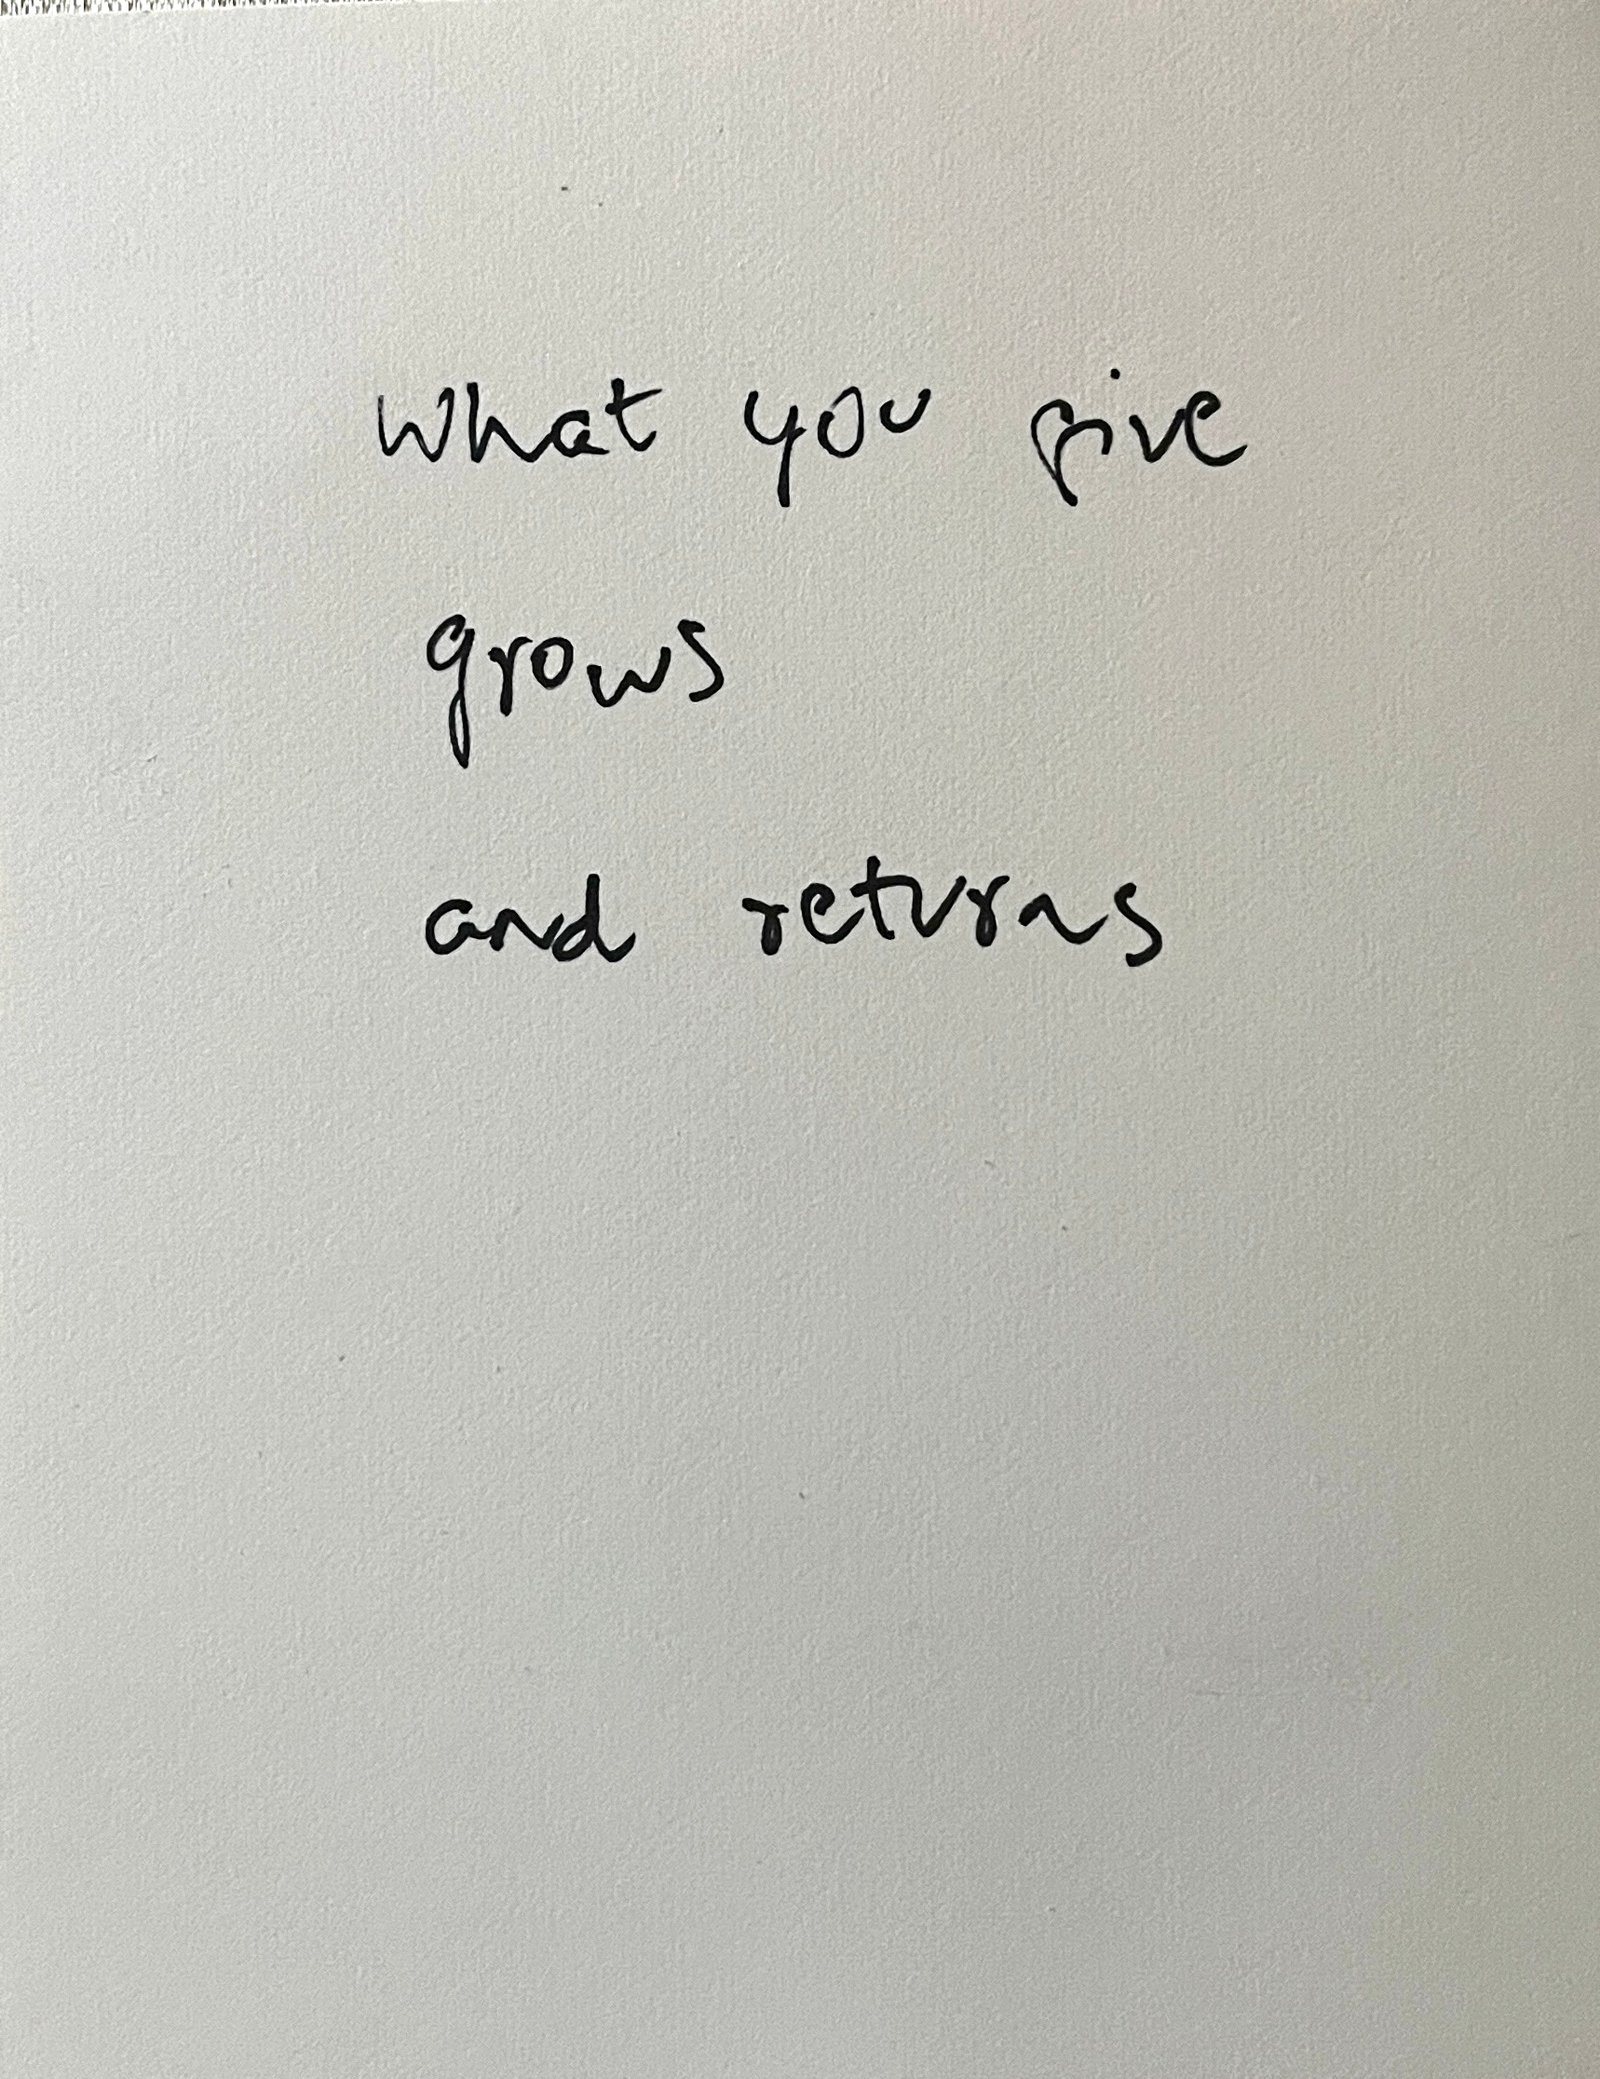 What you give
grows
and returns